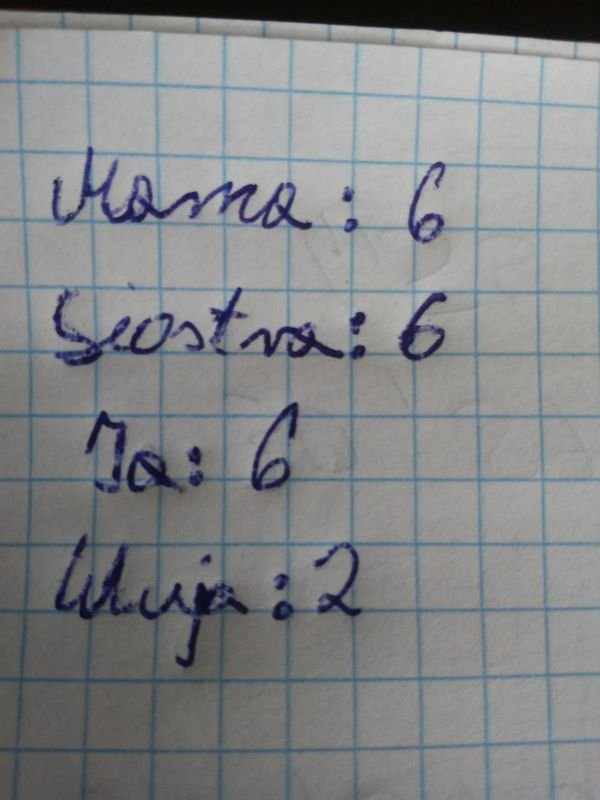 Mama: 6
Siostra: 6
Ja: 6
Wuja: 2